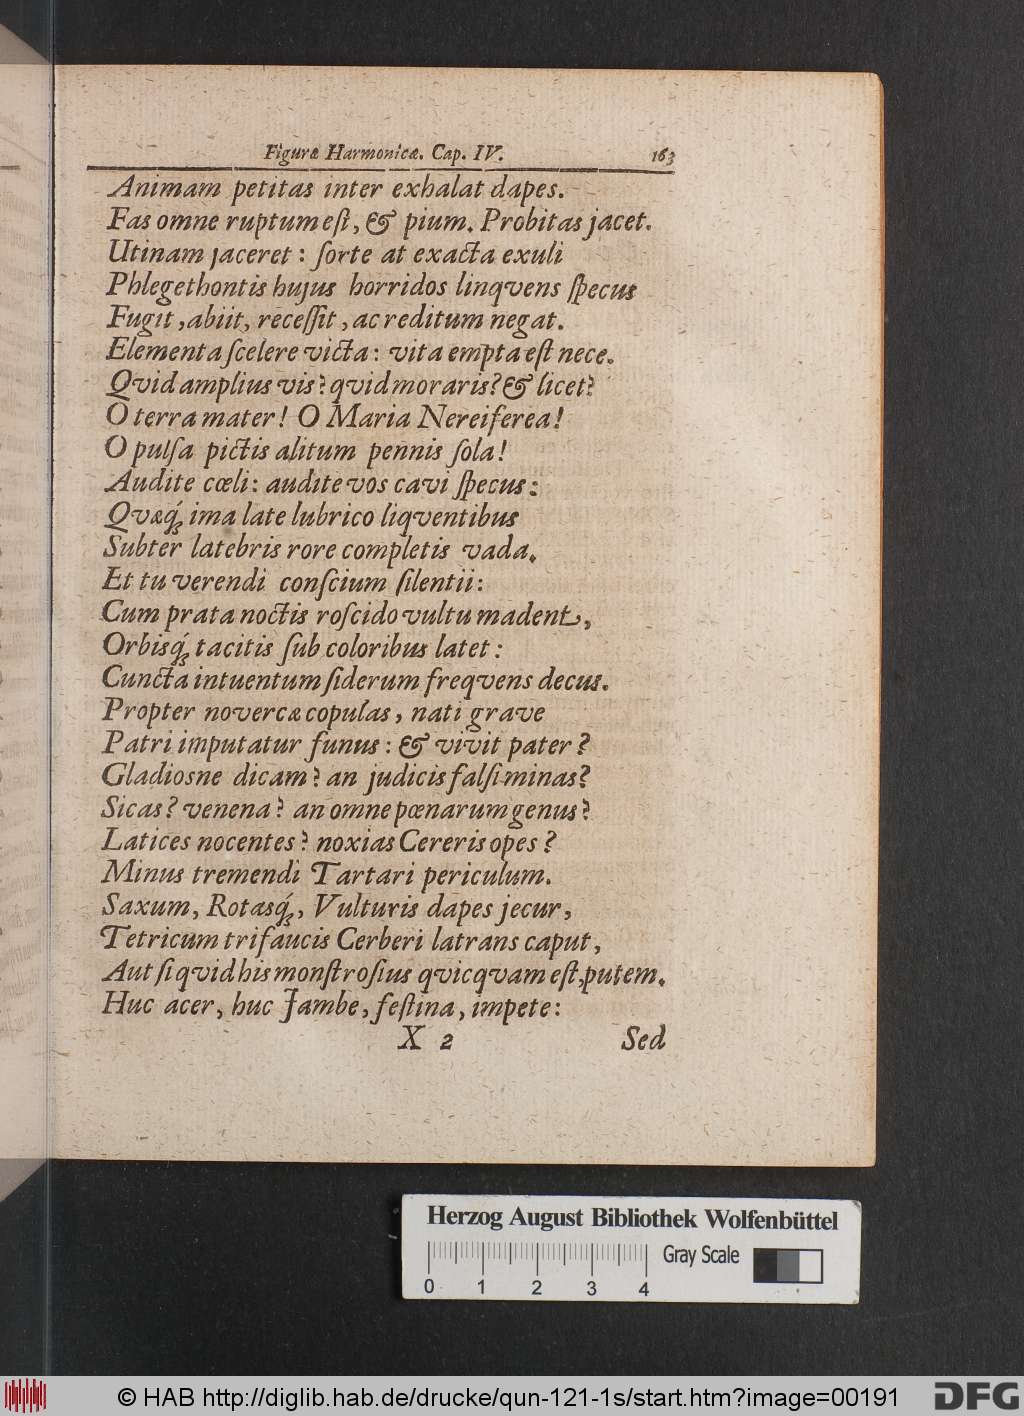 Figuræ Harmonicæ. Cap. IV. 163
Animam petitas inter exhalat dapes.
Fas omne ruptum eſt, & pium. Probitas jacet.
Utinam jaceret : ſorte at exacta exuli
Phlegethontis hujus horridos linqvens ſpecus
Fugit , abiit, receſſit , ac reditum negat.
Elementa ſcelere victa : vita empta eſt nece.
Qvid amplius vis? qvid moraris? & licet?
O terra mater! O Maria Nereiferea!
O pulſa pictis alitum pennis ſola!
Audite cœli: audite vos cavi ſpecus:
Qvæq́ʒ ima late lubrico liqventibus
Subter latebris rore completis vada.
Et tu verendi conſcium ſilentii:
Cum prata noctis roſcido vultu madent,
Orbisq́ʒ tacitis ſub coloribus latet :
Cuncta intuentum ſiderum freqvens decus.
Propter novercæ copulas, nati grave
Patri imputatur funus : & vivit pater?
Gladiosne dicam? an judicis falſi minas?
Sicas? venena? an omne pœnarum genus?
Latices nocentes? noxias Cereris opes?
Minus tremendi Tartari periculum.
Saxum, Rotasq́ʒ, Vulturis dapes jecur,
Tetricum trifaucis Cerberi latrans caput,
Aut ſi qvid his monſtroſius qvicqvam eſt, putem.
Huc acer, huc Jambe, feſtina, impete:
X 2 Sed
Herzog August Bibliothek Wolfenbüttel
Gray Scale
0 1 2 3 4
© HAB http://diglib.hab.de/drucke/qun-121-1s/start.htm?image=00191
DFG